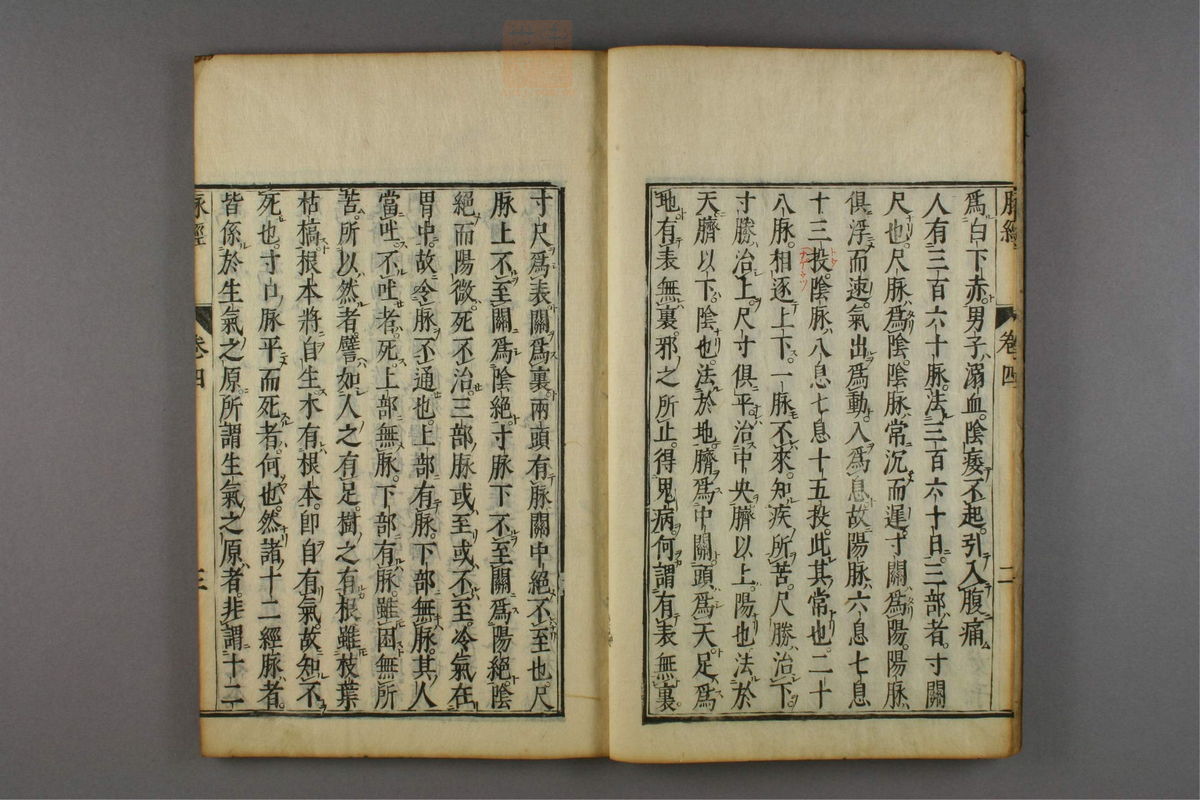 脉經 卷四 二
爲白下赤男子溺血陰痿不起引入腹痛
人有三百六十脉法三百六十日三部者寸關
尺也尺脉爲陰陰脉常沉而遲寸關爲陽陽脉
俱浮而速氣出爲動入爲息故陽脉六息七息
十三投陰脉八息七息十五投此其常也二十
八脉相逐上下一脉不來知疾所苦尺勝治下
寸勝治上尺寸俱平治中央臍以上陽也法於
天臍以下陰也法於地臍爲中關頭爲天足爲
地有表無裏邪之所止得鬼病何謂有表無裏
寸尺爲表關爲裏兩頭有脉關中絕不至也尺
脉上不至關爲陰絕寸脉下不至關爲陽絕陰
絕而陽微死不治三部脉或至或不至冷氣在
胃中故令脉不通也上部有脉下部無脉其人
當吐不吐者死上部無脉下部有脉雖困無所
苦所以然者譬如人之有足樹之有根雖枝葉
枯槁根本將自生木有根本即自有氣故知不
死也寸口脉平而死者何也然諸十二經脉者
皆係於生氣之原所謂生氣之原者非謂十二
脉經 卷四 三